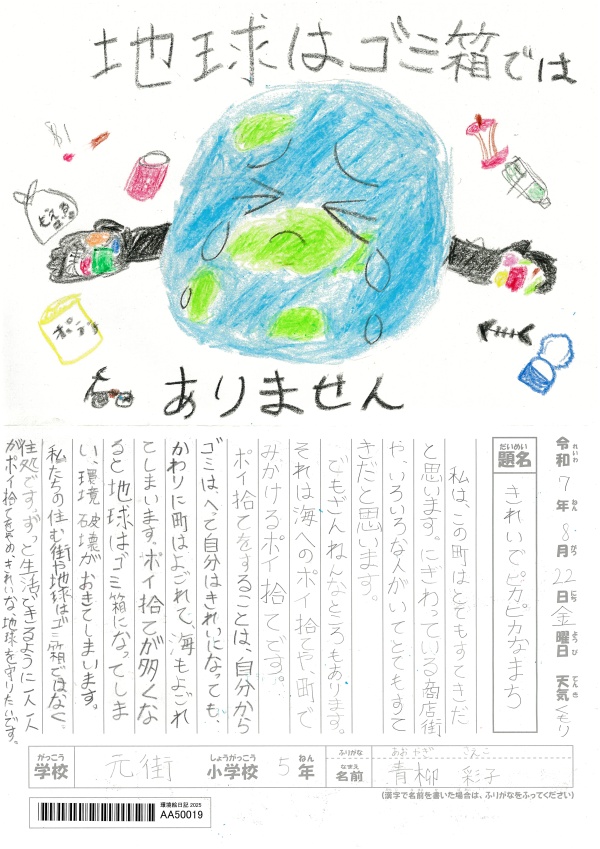 地球はゴミ箱では
ありません
令和7年8月22日金曜日 天気くもり
れいわ ねん がつ にち ようび てんき
だいめい
題名
きれいでピカピカなまち
私は、この町はとてもすてきだ
と思います。にぎわっている商店街
や、いろいろな人がいてとてもすて
きだと思います。
でもざんねんなところもあります。
それは海へのポイ捨てや、町で
みかけるポイ捨てです。
ポイ捨てをすることは、自分から
ゴミは、へって自分はきれいになっても、
かわりに町はよごれて、海もよごれ
てしまいます。ポイ捨てが多くな
ると地球はゴミ箱になってしま
い、環境破壊がおきてしまいます。
私たちの住む街や地球はゴミ箱ではなく、
住処です。ずっと生活できるように一人一人
がポイ捨てをやめ、きれいな地球を守りたいです。
がっこう
学校
元街
しょうがっこう
小学校
5
ねん
年
ふりがな
あおやぎ さえこ
なまえ
名前
青柳 彩子
(漢字で名前を書いた場合は、ふりがなをふってください)
環境絵日記 2025
AA50019